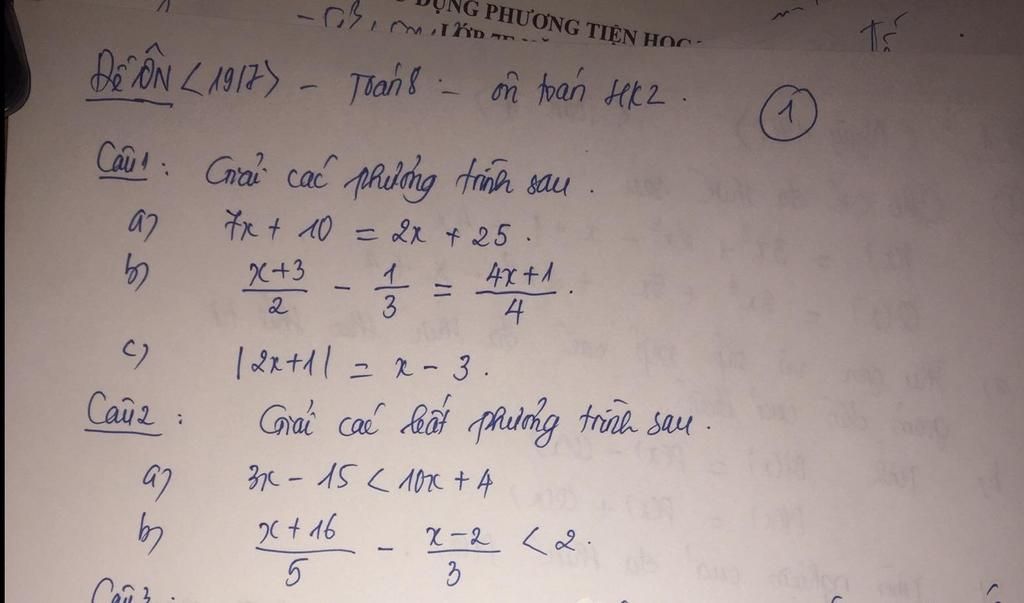 DỤNG PHƯƠNG TIỆN HỌC
LỚP
Đề ÔN <19/7> - Toán 8 - ôn toán HK2.
1
Câu 1: Giải các phương trình sau.
a) 7x + 10 = 2x + 25.
b) \frac{x+3}{2} - \frac{1}{3} = \frac{4x+1}{4}.
c) |2x+1| = x - 3.
Câu 2: Giải các bất phương trình sau.
a) 3x - 15 < 10x + 4
b) \frac{x+16}{5} - \frac{x-2}{3} < 2.
Câu 3: